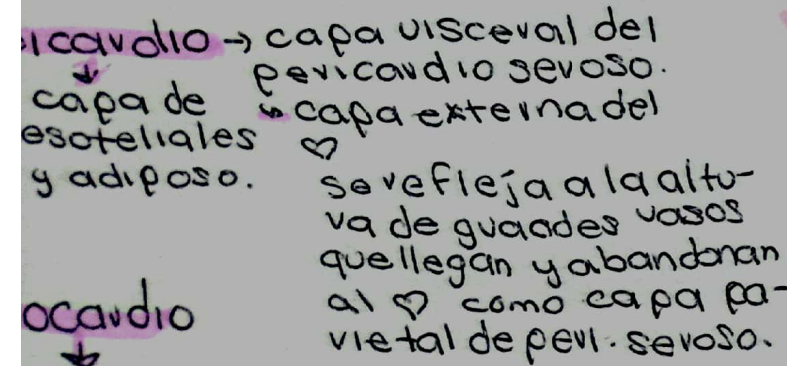 icardio → capa visceral del
pericardio seroso.
↓
capa de
esoteliales
y adiposo.
↳ capa externa del
♡
se refleja a la altu-
ra de grandes vasos
que llegan y abandonan
al ♡ como capa pa-
rietal de peri. seroso.
ocardio
↓